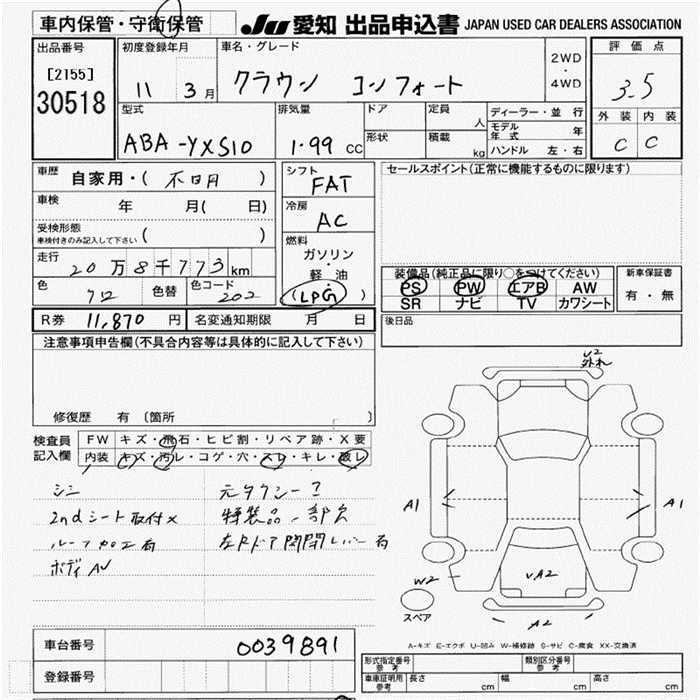 車内保管・守衛保管
JU 愛知 出品申込書 JAPAN USED CAR DEALERS ASSOCIATION
出品番号
[2155]
30518
初度登録年月
11 3月
車名・グレード
クラウン コンフォート
2WD
・
4WD
評価点
3.5
外装 内装
C C
型式
ABA-YXS10
排気量
1.99 CC
ドア
形状
定員
人
積載
kg
ディーラー・並 行
モデル年式 年
ハンドル 左・右
車歴
自家用・( 不明 )
車検
年 月( 日)
受検形態
車検付きのみ記入して下さい ( )
走行
20万8千773km
色
クロ
色替
色コード
202
シフト
FAT
冷房
AC
燃料
ガソリン
・
軽・油
(LPG)
セールスポイント(正常に機能するものに限ります)
装備品(純正品に限り○をつけてください)
PS PW エアB AW
SR ナビ TV カワシート
新車保証書
有・無
R券 11,870 円
名変通知期限 月 日
後日品
注意事項申告欄(不具合内容等は具体的に記入して下さい)
修復歴 有 〔箇所 〕
検査員
記入欄
FW キズ・飛石・ヒビ割・リペア跡・X要
内装 キズ・汚レ・コゲ・穴・スレ・キレ・破レ
シミ
2ndシート取付×
ルーフ加工有
ボディAU
元タクシー
特装品一部欠
左Rドア開閉レバー有
U2
外れ
A1
A1
W2
V.A2
A2
スペア
A-キズ E-エクボ U-凹み W-補修跡 S-サビ C-腐食 XX-交換済
車台番号
0039891
登録番号
形式指定番号
参考
類別区分番号
参考
車庫証明用
参考
長さ cm
幅 cm
高さ cm